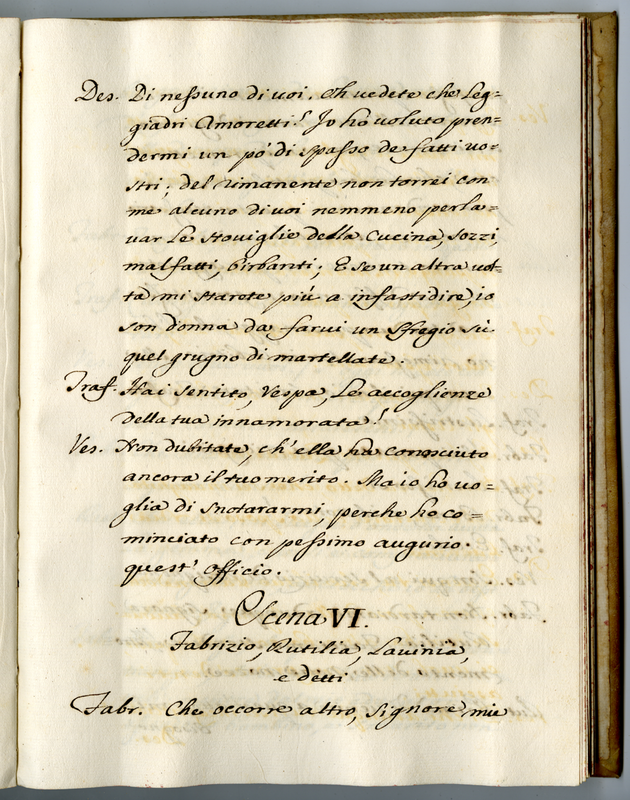 Des. Di nessuno di voi. Oh vedete che Leg=
giadri Amoretti! Io hò voluto pren=
dermi un pò di spasso de fatti vo=
stri; del rimanente non torrei con
me alcuno di voi nemmeno per la=
var Le stoviglie della Cucina, sozzi,
malfatti, birbanti; E se un altra vol=
ta mi starete più a infastidire, io
son donna da farvi un sfregio sù
quel grugno di martellate.
Traf. Hai sentito, Vespa, Le accoglienze
della tua innamorata!
Ves. Non dubitate, ch'ella ha conosciuto
ancora il tuo merito. Ma io ho vo=
glia di snotararmi, perche ho co=
minciato con pessimo augurio
quest' officio.
Scena VI.
Fabrizio, Rutilia, Lavinia,
e detti
Fabr. Che occorre altro, Signore mie